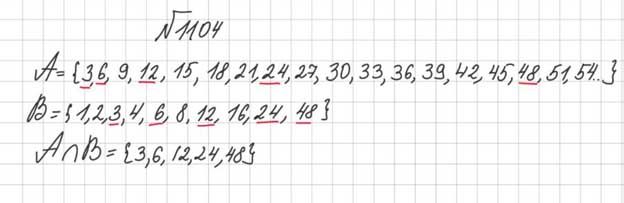 №1104
A={3,6, 9, 12, 15, 18,21,24,27,30,33,36,39,42,45,48,51,54..}
B={1,2,3,4, 6,8,12,16,24, 48}
A∩B={3,6,12,24,48}